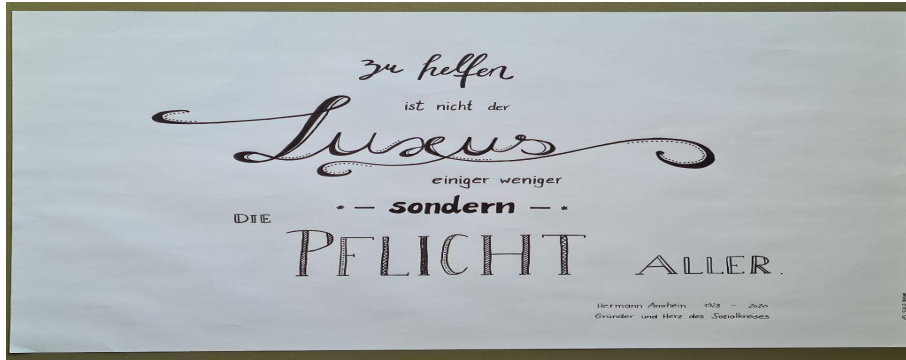 zu helfen
ist nicht der
Luxus
einiger weniger
sondern
DIE
PFLICHT ALLER.
Hermann Amrhein 1928 - 2020
Gründer und Herz des Sozialkreises